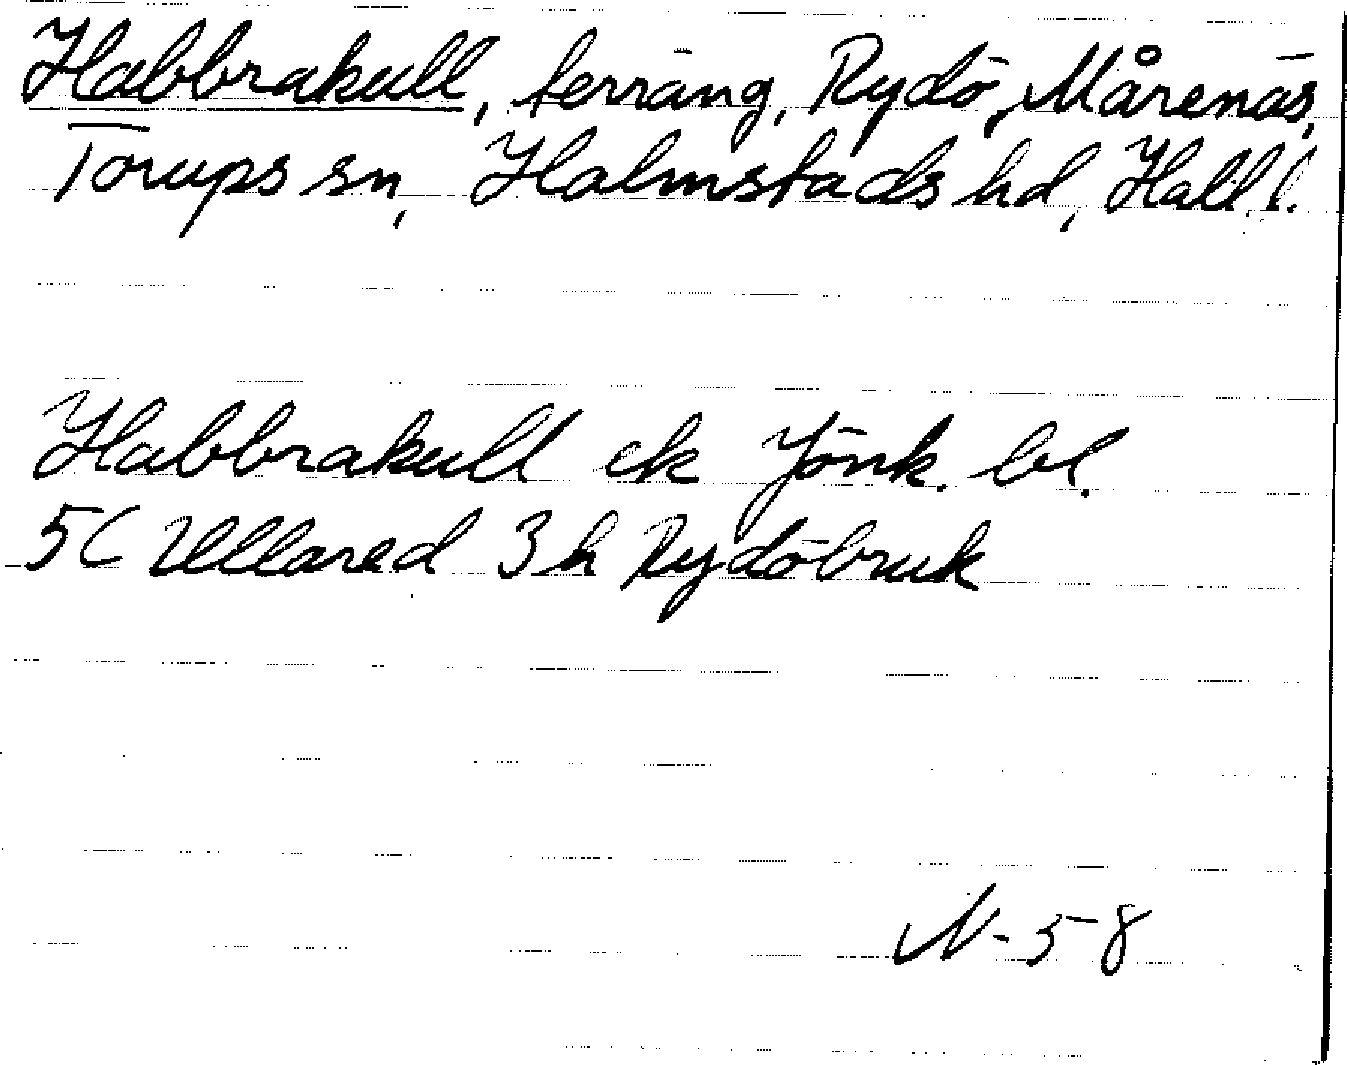 Habbrakull, terräng, Rydö, Mårenäs,
Torups sn, Halmstads hd, Hall.l.
Habbrakull ek Jönk. bl.
5C Ullared 3h Rydöbruk
N-58